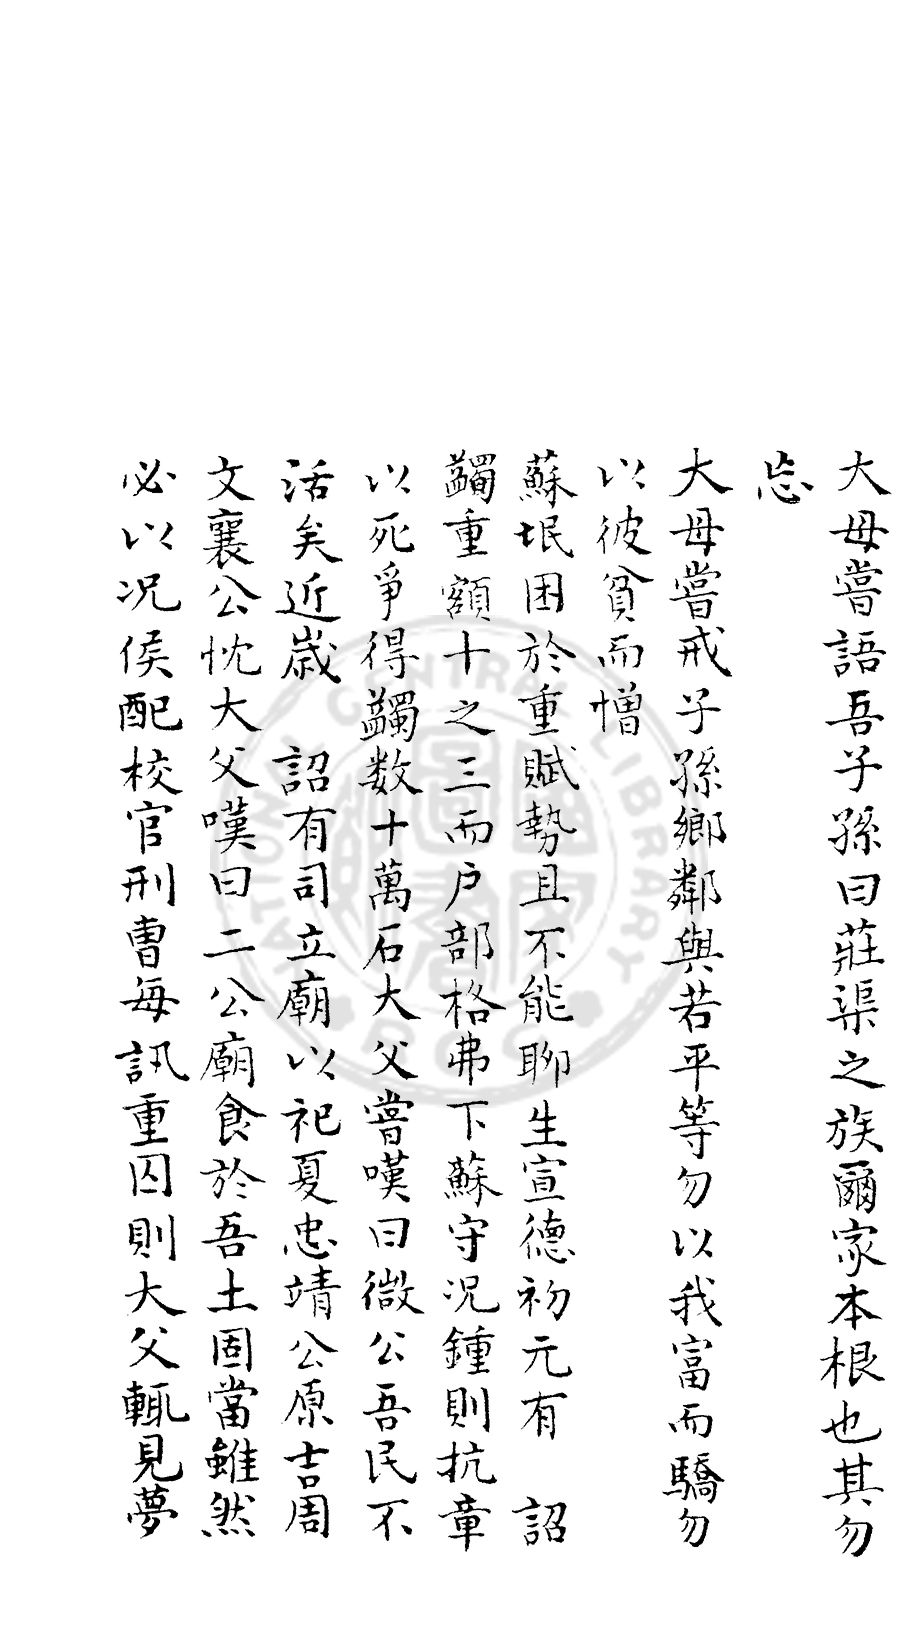 大母嘗語吾子孫曰莊渠之族爾家本根也其勿
忘
大母嘗戒子孫鄉鄰與若平等勿以我富而驕勿
以彼貧而憎
蘇垊困於重賦勢且不能聊生宣德初元有　詔
蠲重額十之三而户部格弗下蘇守况鍾則抗章
以死爭得蠲数十萬石大父嘗嘆曰微公吾民不
活矣近歲　詔有司立廟以祀夏忠靖公原吉周
文襄公忱大父嘆曰二公廟食於吾土固當雖然
必以况侯配校官刑曹每訊重囚則大父輒見夢
CENTRAL LIBRARY
NATIONAL
ROC
國家圖書館